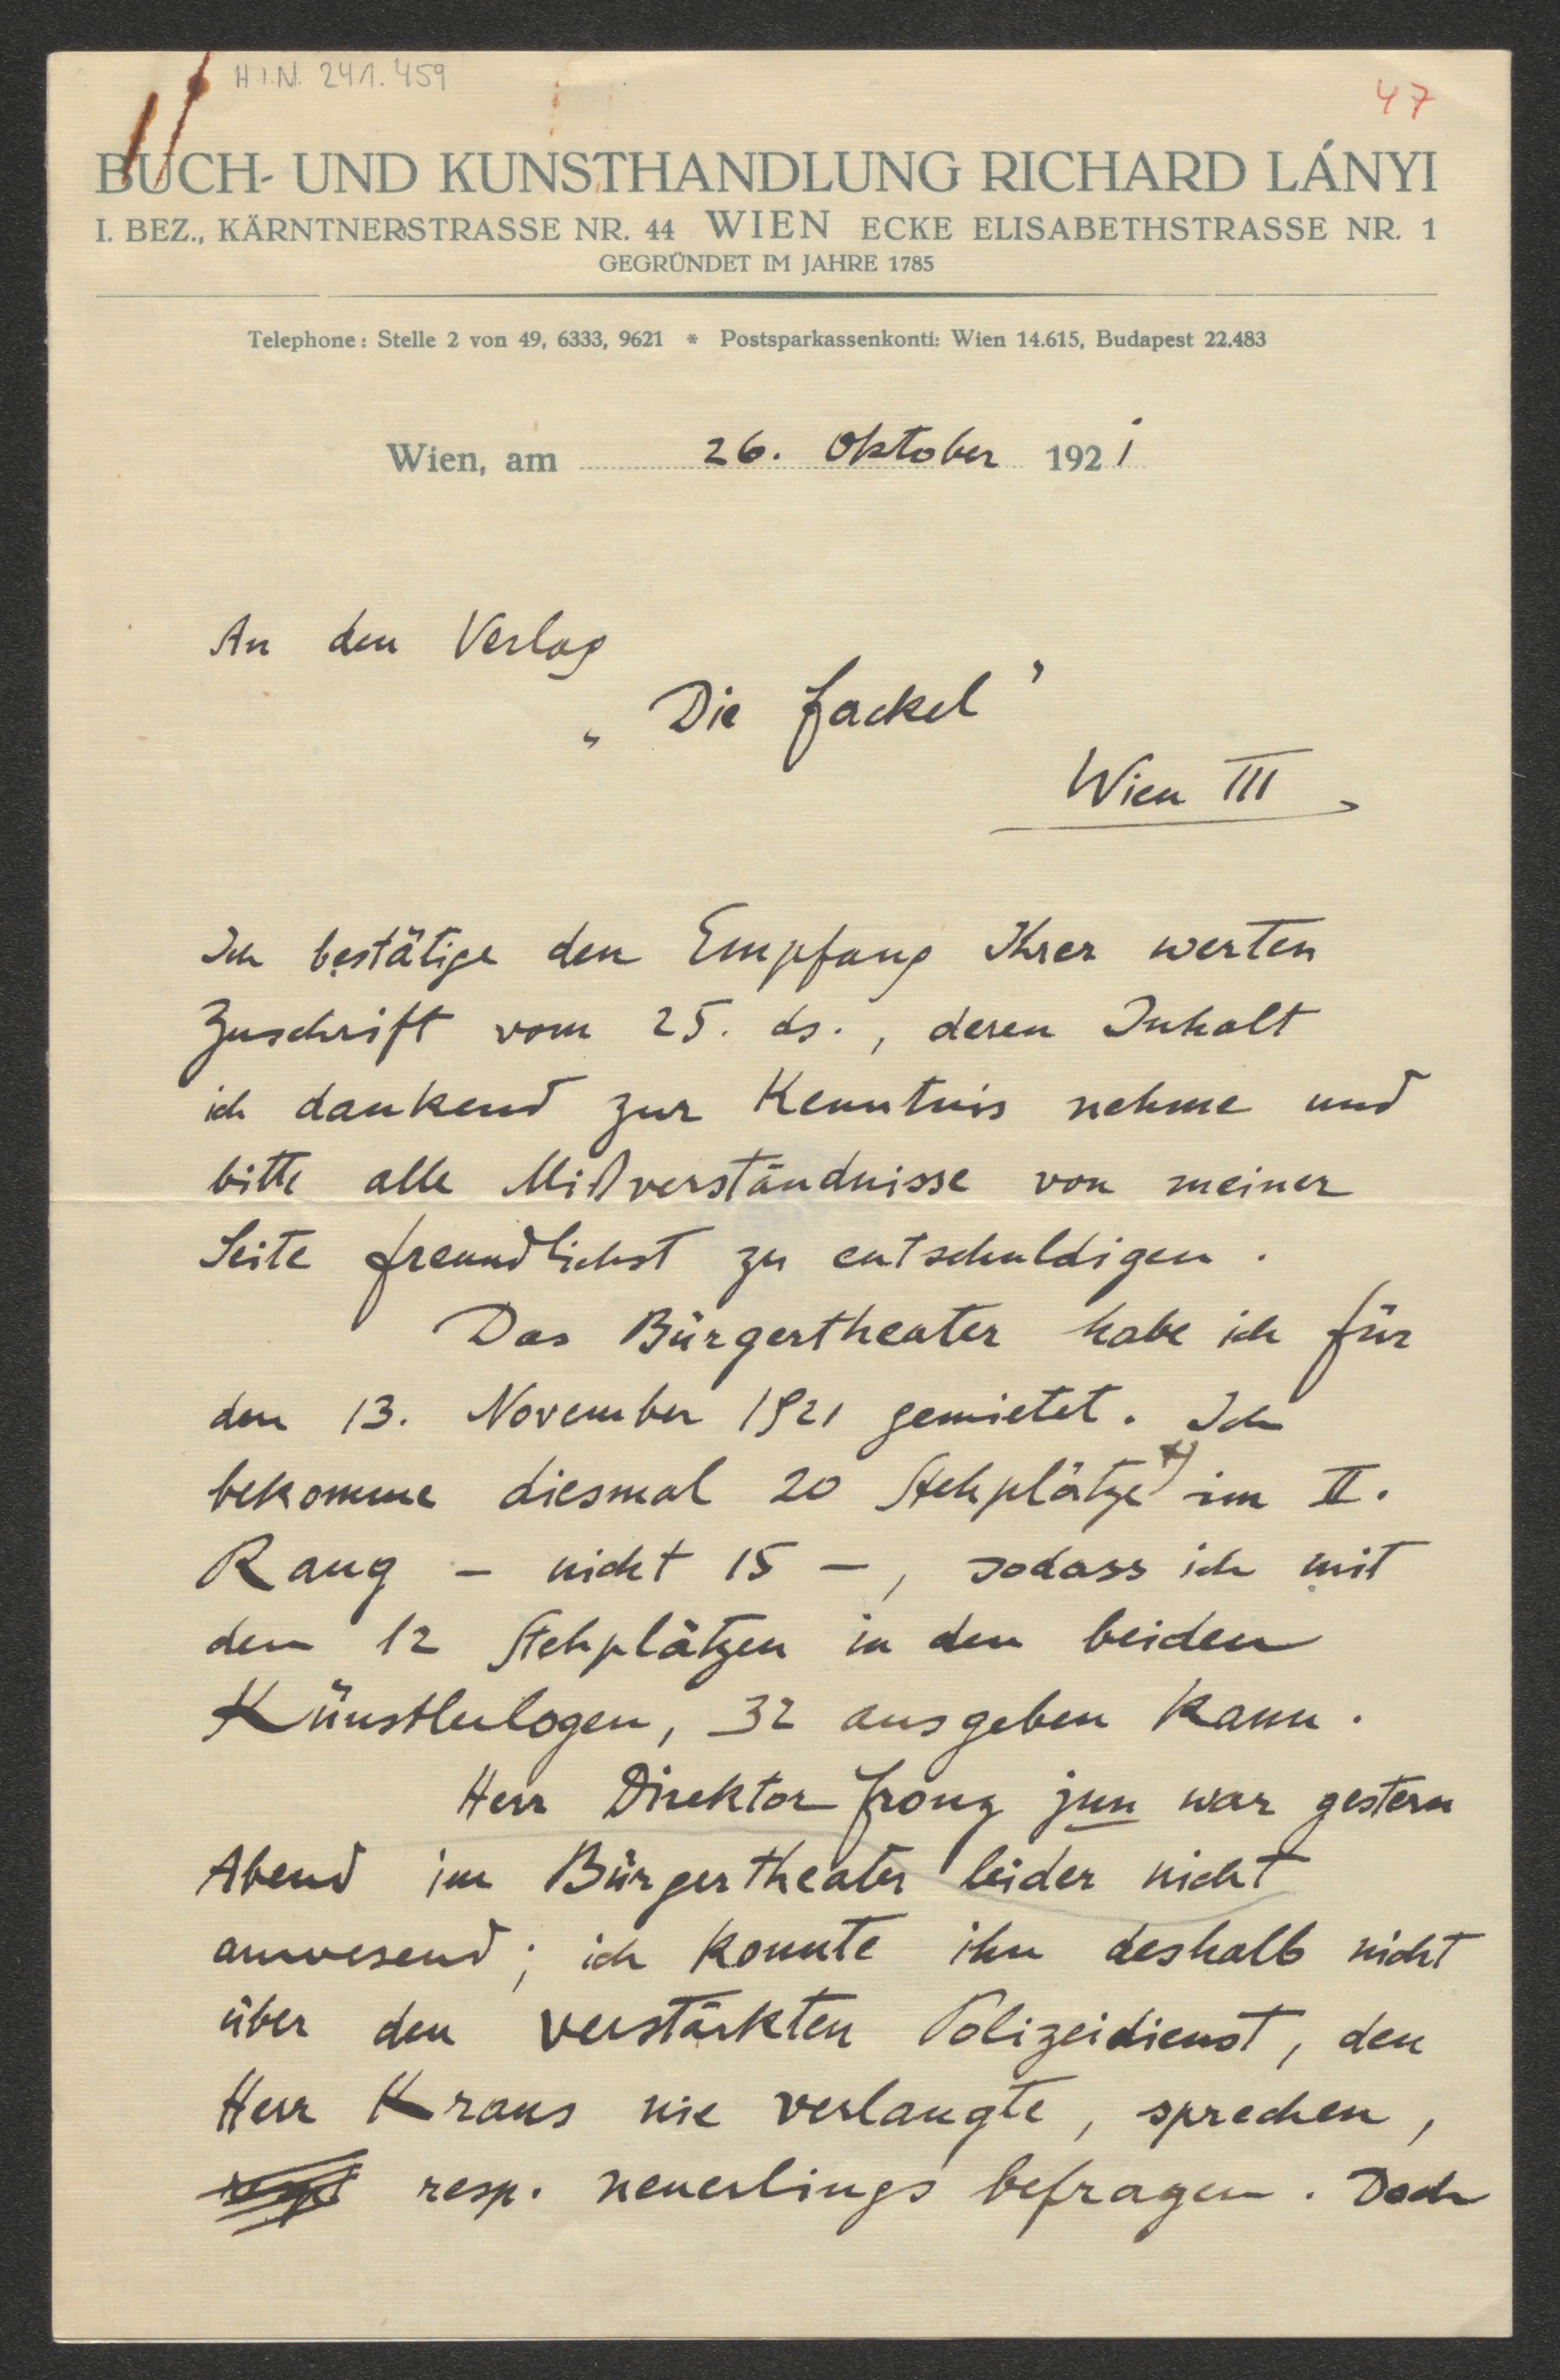 H.I.N. 241.459
47
BUCH- UND KUNSTHANDLUNG RICHARD LÁNYI
I. BEZ., KÄRNTNERSTRASSE NR. 44 WIEN ECKE ELISABETHSTRASSE NR. 1
GEGRÜNDET IM JAHRE 1785
Telephone: Stelle 2 von 49, 6333, 9621 * Postsparkassenkonti: Wien 14.615, Budapest 22.483
Wien, am 26. Oktober 1921
An den Verlag
„Die Fackel"
Wien III
Ich bestätige den Empfang Ihrer werten
Zuschrift vom 25. ds., deren Inhalt
ich dankend zur Kenntnis nehme und
bitte alle Mißverständnisse von meiner
Seite freundlichst zu entschuldigen.
Das Bürgertheater habe ich für
den 13. November 1921 gemietet. Ich
bekomme diesmal 20 Stehplätze x) im II.
Rang – nicht 15 –, sodass ich mit
den 12 Stehplätzen in den beiden
Künstlerlogen, 32 ausgeben kann.
Herr Direktor Fronz jun war gestern
Abend im Bürgertheater leider nicht
anwesend; ich konnte ihn deshalb nicht
über den verstärkten Polizeidienst, den
Herr Kraus nie verlangte, sprechen,
resp. neuerlings befragen. Doch